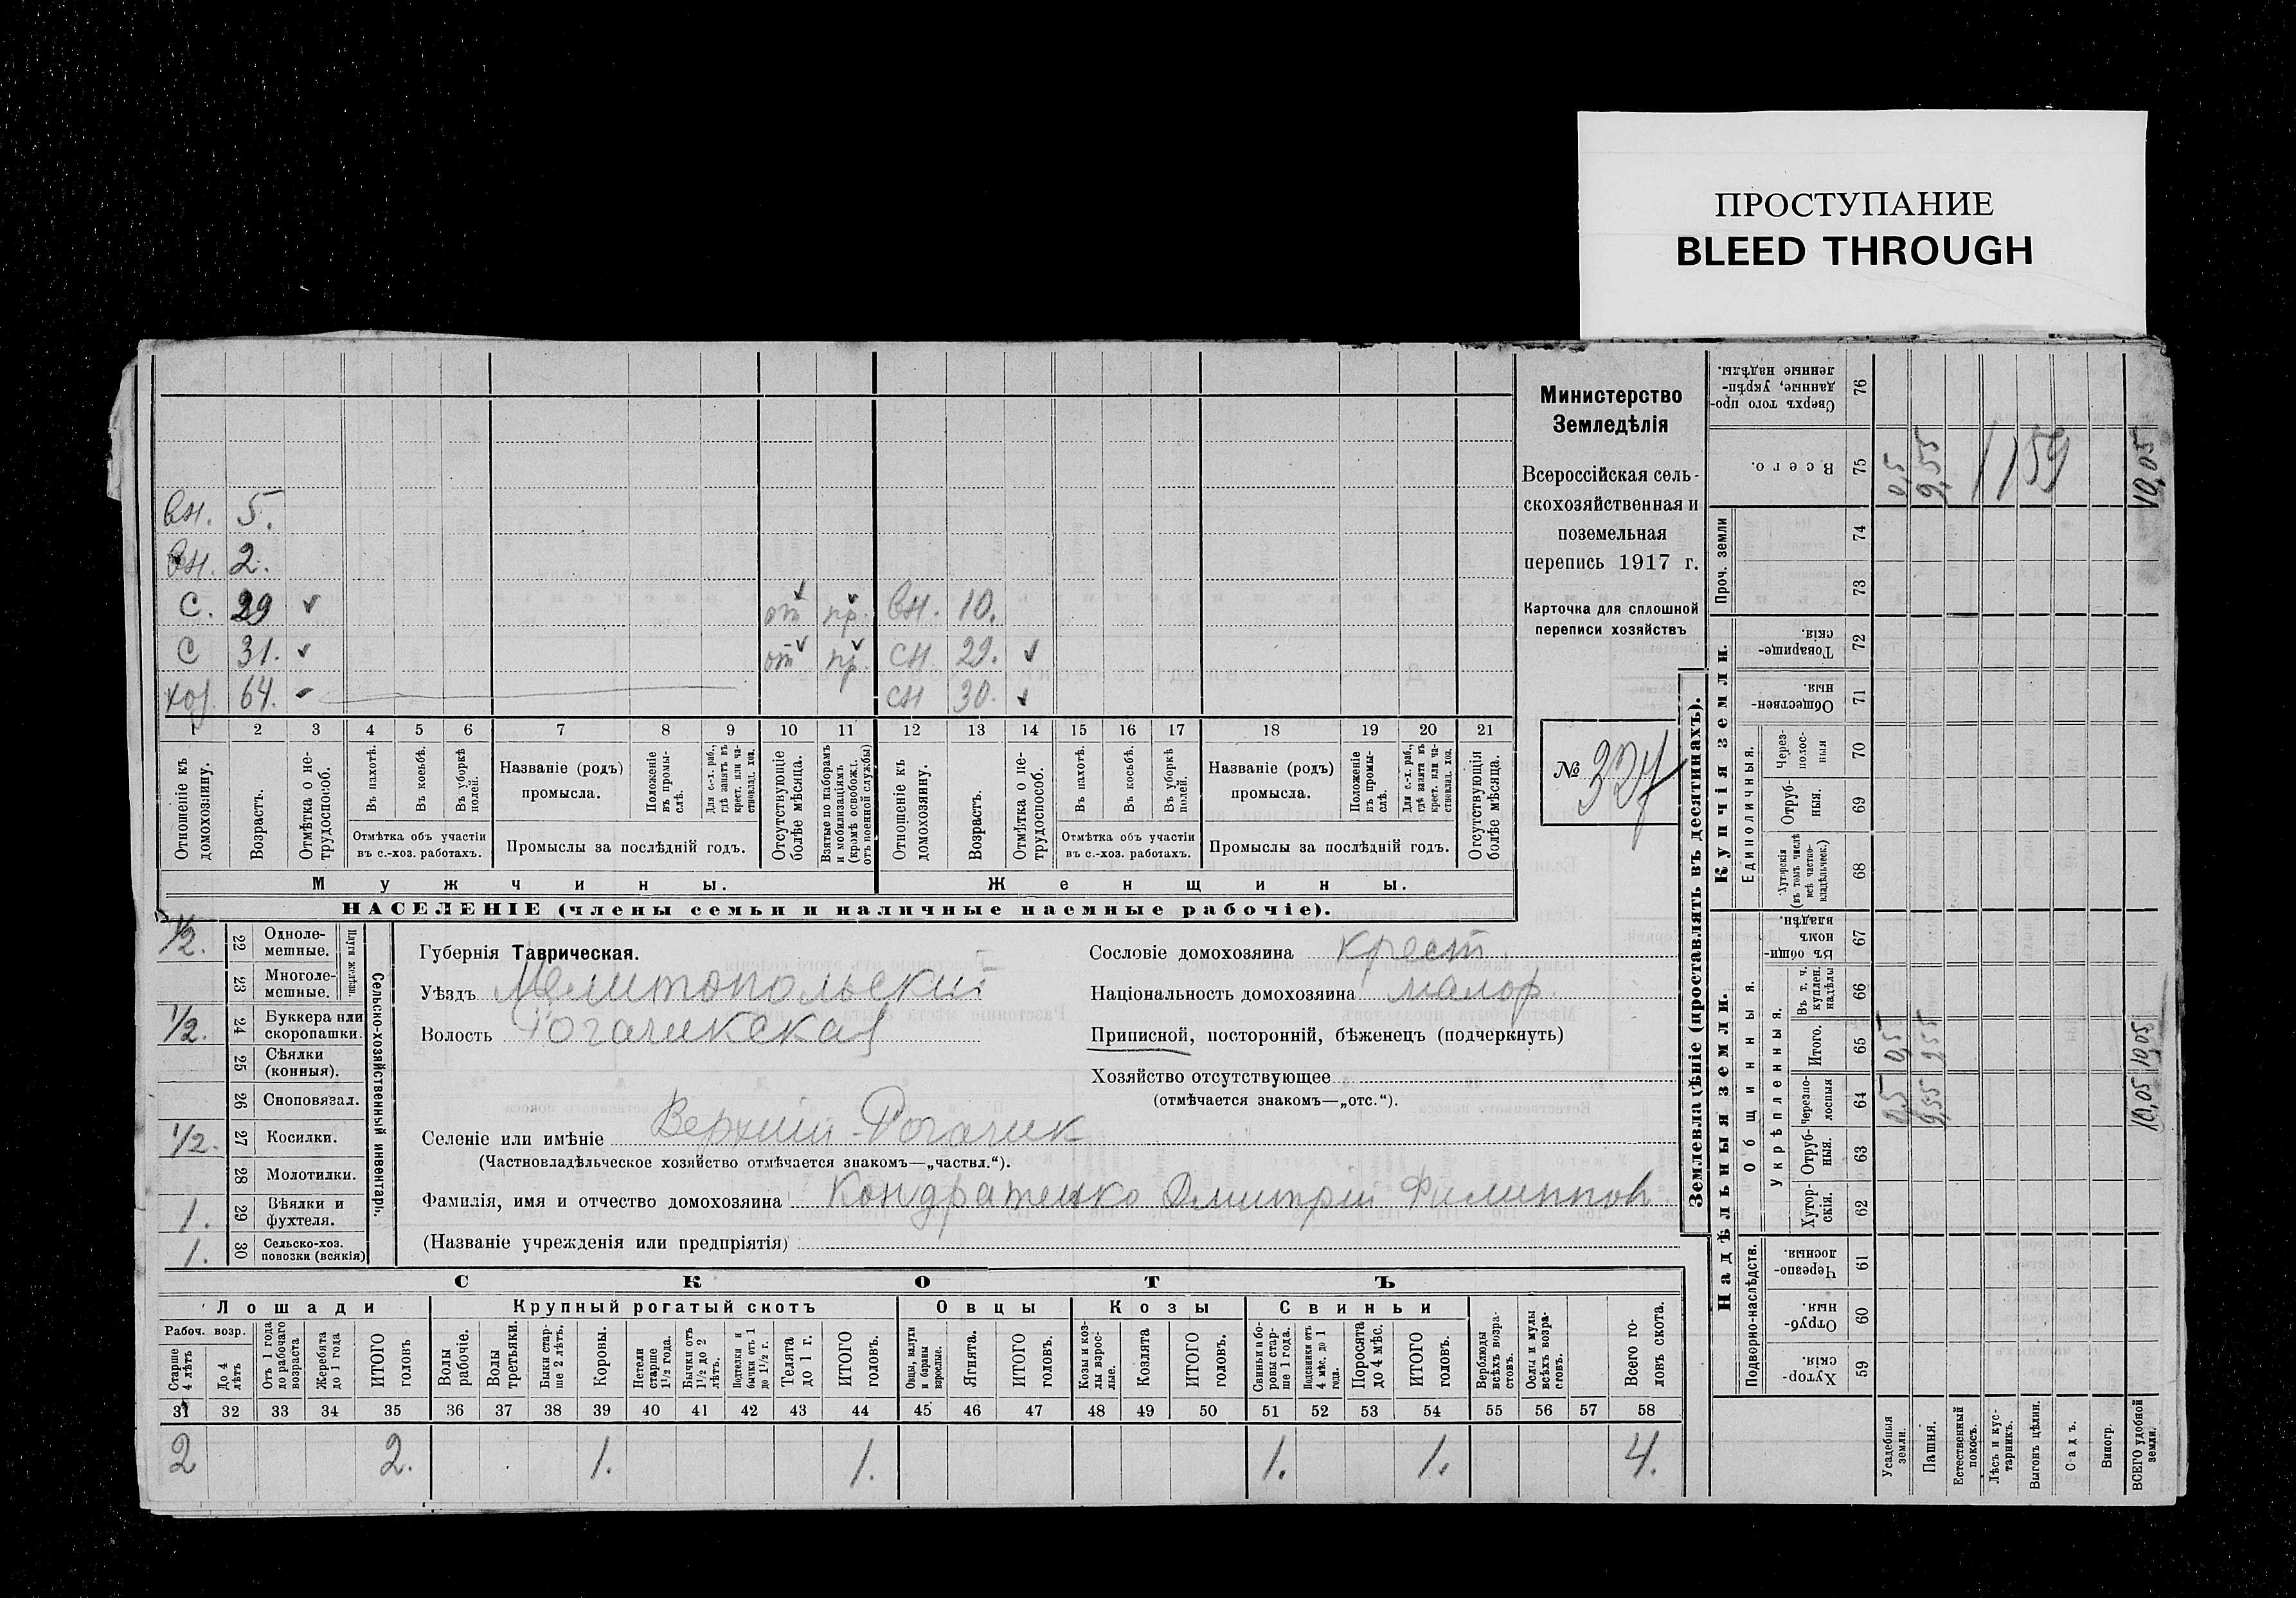 ПРОСТУПАНИЕ
BLEED THROUGH
Министерство
Земледѣлія
Всероссійская сель-
скохозяйственная и
поземельная
перепись 1917 г.
Карточка для сплошной
переписи хозяйствъ
№ 327
вн. 5.
вн. 2.
с. 29 от пр. вн. 10.
с 31. от пр. сн 29.
хоз. 64. сн 30.
1 2 3 4 5 6 7 8 9 10 11 12 13 14 15 16 17 18 19 20 21
Отношеніе къ домохозяину.
Возрастъ.
Отмѣтка о не-трудоспособ.
Въ пахотѣ.
Въ косьбѣ.
Въ уборкѣ полей.
Отмѣтка объ участіи
въ с.-хоз. работахъ.
Названіе (родъ)
промысла.
Положеніе въ промы-слѣ.
Для с.-х. раб., гдѣ занятъ въ крест. или ча-стновлад. хоз.
Промыслы за послѣдній годъ.
Отсутствующіе болѣе мѣсяца.
Взятые по наборамъ и мобилизаціямъ (кромѣ освобожд. отъ военной службы)
Отношеніе къ домохозяину.
Возрастъ.
Отмѣтка о не-трудоспособ.
Въ пахотѣ.
Въ косьбѣ.
Въ уборкѣ полей.
Отмѣтка объ участіи
въ с.-хоз. работахъ.
Названіе (родъ)
промысла.
Положеніе въ промы-слѣ.
Для с.-х. раб., гдѣ занята въ крест. или ча-стновлад. хоз.
Промыслы за послѣдній годъ.
Отсутствующія болѣе мѣсяца.
Мужчины.
Женщины.
НАСЕЛЕНІЕ (члены семьи и наличные наемные рабочіе).
Сельско-хозяйственный инвентарь.
Плуги желѣзн.
1/2. 22 Одноле-мешные.
23 Многоле-мешные.
1/2. 24 Буккера или скоропашки.
25 Сѣялки (конныя).
26 Сноповязал.
1/2. 27 Косилки.
28 Молотилки.
1. 29 Вѣялки и фухтеля.
1. 30 Сельско-хоз. повозки (всякія)
Губернія Таврическая.
Уѣздъ Мелитопольский
Волость Рогачикская
Сословіе домохозяина крест.
Національность домохозяина малор.
Приписной, посторонній, бѣженец (подчеркнуть)
Хозяйство отсутствующее
(отмѣчается знакомъ—„отс.“).
Селеніе или имѣніе Верхний-Рогачик
(Частновладѣльческое хозяйство отмѣчается знакомъ—„частвл.“).
Фамилія, имя и отчество домохозяина Кондратенко Дмитрий Филиппов
(Названіе учрежденія или предпріятія)
СКОТЪ
Лошади
Крупный рогатый скотъ
Овцы
Козы
Свиньи
Рабоч. возр.
Старше 4 лѣтъ
До 4 лѣтъ
Отъ 1 года до рабочаго возраста
Жеребята до 1 года
ИТОГО головъ
Волы рабочіе.
Волы третьяки.
Быки стар-ше 2 лѣтъ.
Коровы.
Нетели старше 1½ года.
Бычки отъ 1½ до 2 лѣтъ.
Подтелки и бычки отъ 1 до 1½ г.
Телята до 1 г.
ИТОГО головъ.
Овцы, валухи и бараны взрослые.
Ягнята.
ИТОГО головъ.
Козы и коз-лы взрос-лые.
Козлята
ИТОГО головъ.
Свиньи и бо-ровы стар-ше 1 года.
Подсвинки отъ 4 мѣс. до 1 года.
Поросята до 4 мѣс.
ИТОГО головъ.
Верблюды всѣхъ возра-стовъ.
Ослы и мулы всѣхъ возра-стовъ.
Всего го-ловъ скота.
31 32 33 34 35 36 37 38 39 40 41 42 43 44 45 46 47 48 49 50 51 52 53 54 55 56 57 58
2 2. 1. 1. 1. 1. 4.
Землевладѣніе (проставлять въ десятинахъ).
Надѣльныя земли.
Купчія земли.
Проч. земли
Подворно-наслѣдств.
Общинныя.
Укрѣпленныя.
Единоличныя.
Сверхъ того про-данные, укрѣп-ленные надѣлы. 76
Всего. 75 0,5 9,55 1159 10,05
74
73
Товарище-скія. 72
Обществен-ныя. 71
Через-полос-ныя 70
Отруб-ныя. 69
Хуторскія (въ томъ числѣ всѣ частно-владѣльческ.) 68
Въ общин-номъ владѣн. 67
Въ т. ч. куплен. надѣлы 66
Итого. 65 0,5 9,55 10,05
Черезпо-лосныя 64 0,5 9,55 10,05
Отруб-ныя. 63
Хутор-скія. 62
Черезпо-лосныя. 61
Отруб-ныя. 60
Хутор-скія. 59
Усадебныя земли.
Пашня.
Естественный покосъ.
Лѣсъ и кус-тарникъ.
Выгонъ цѣлин.
Садъ.
Виногр.
ВСЕГО удобной земли.